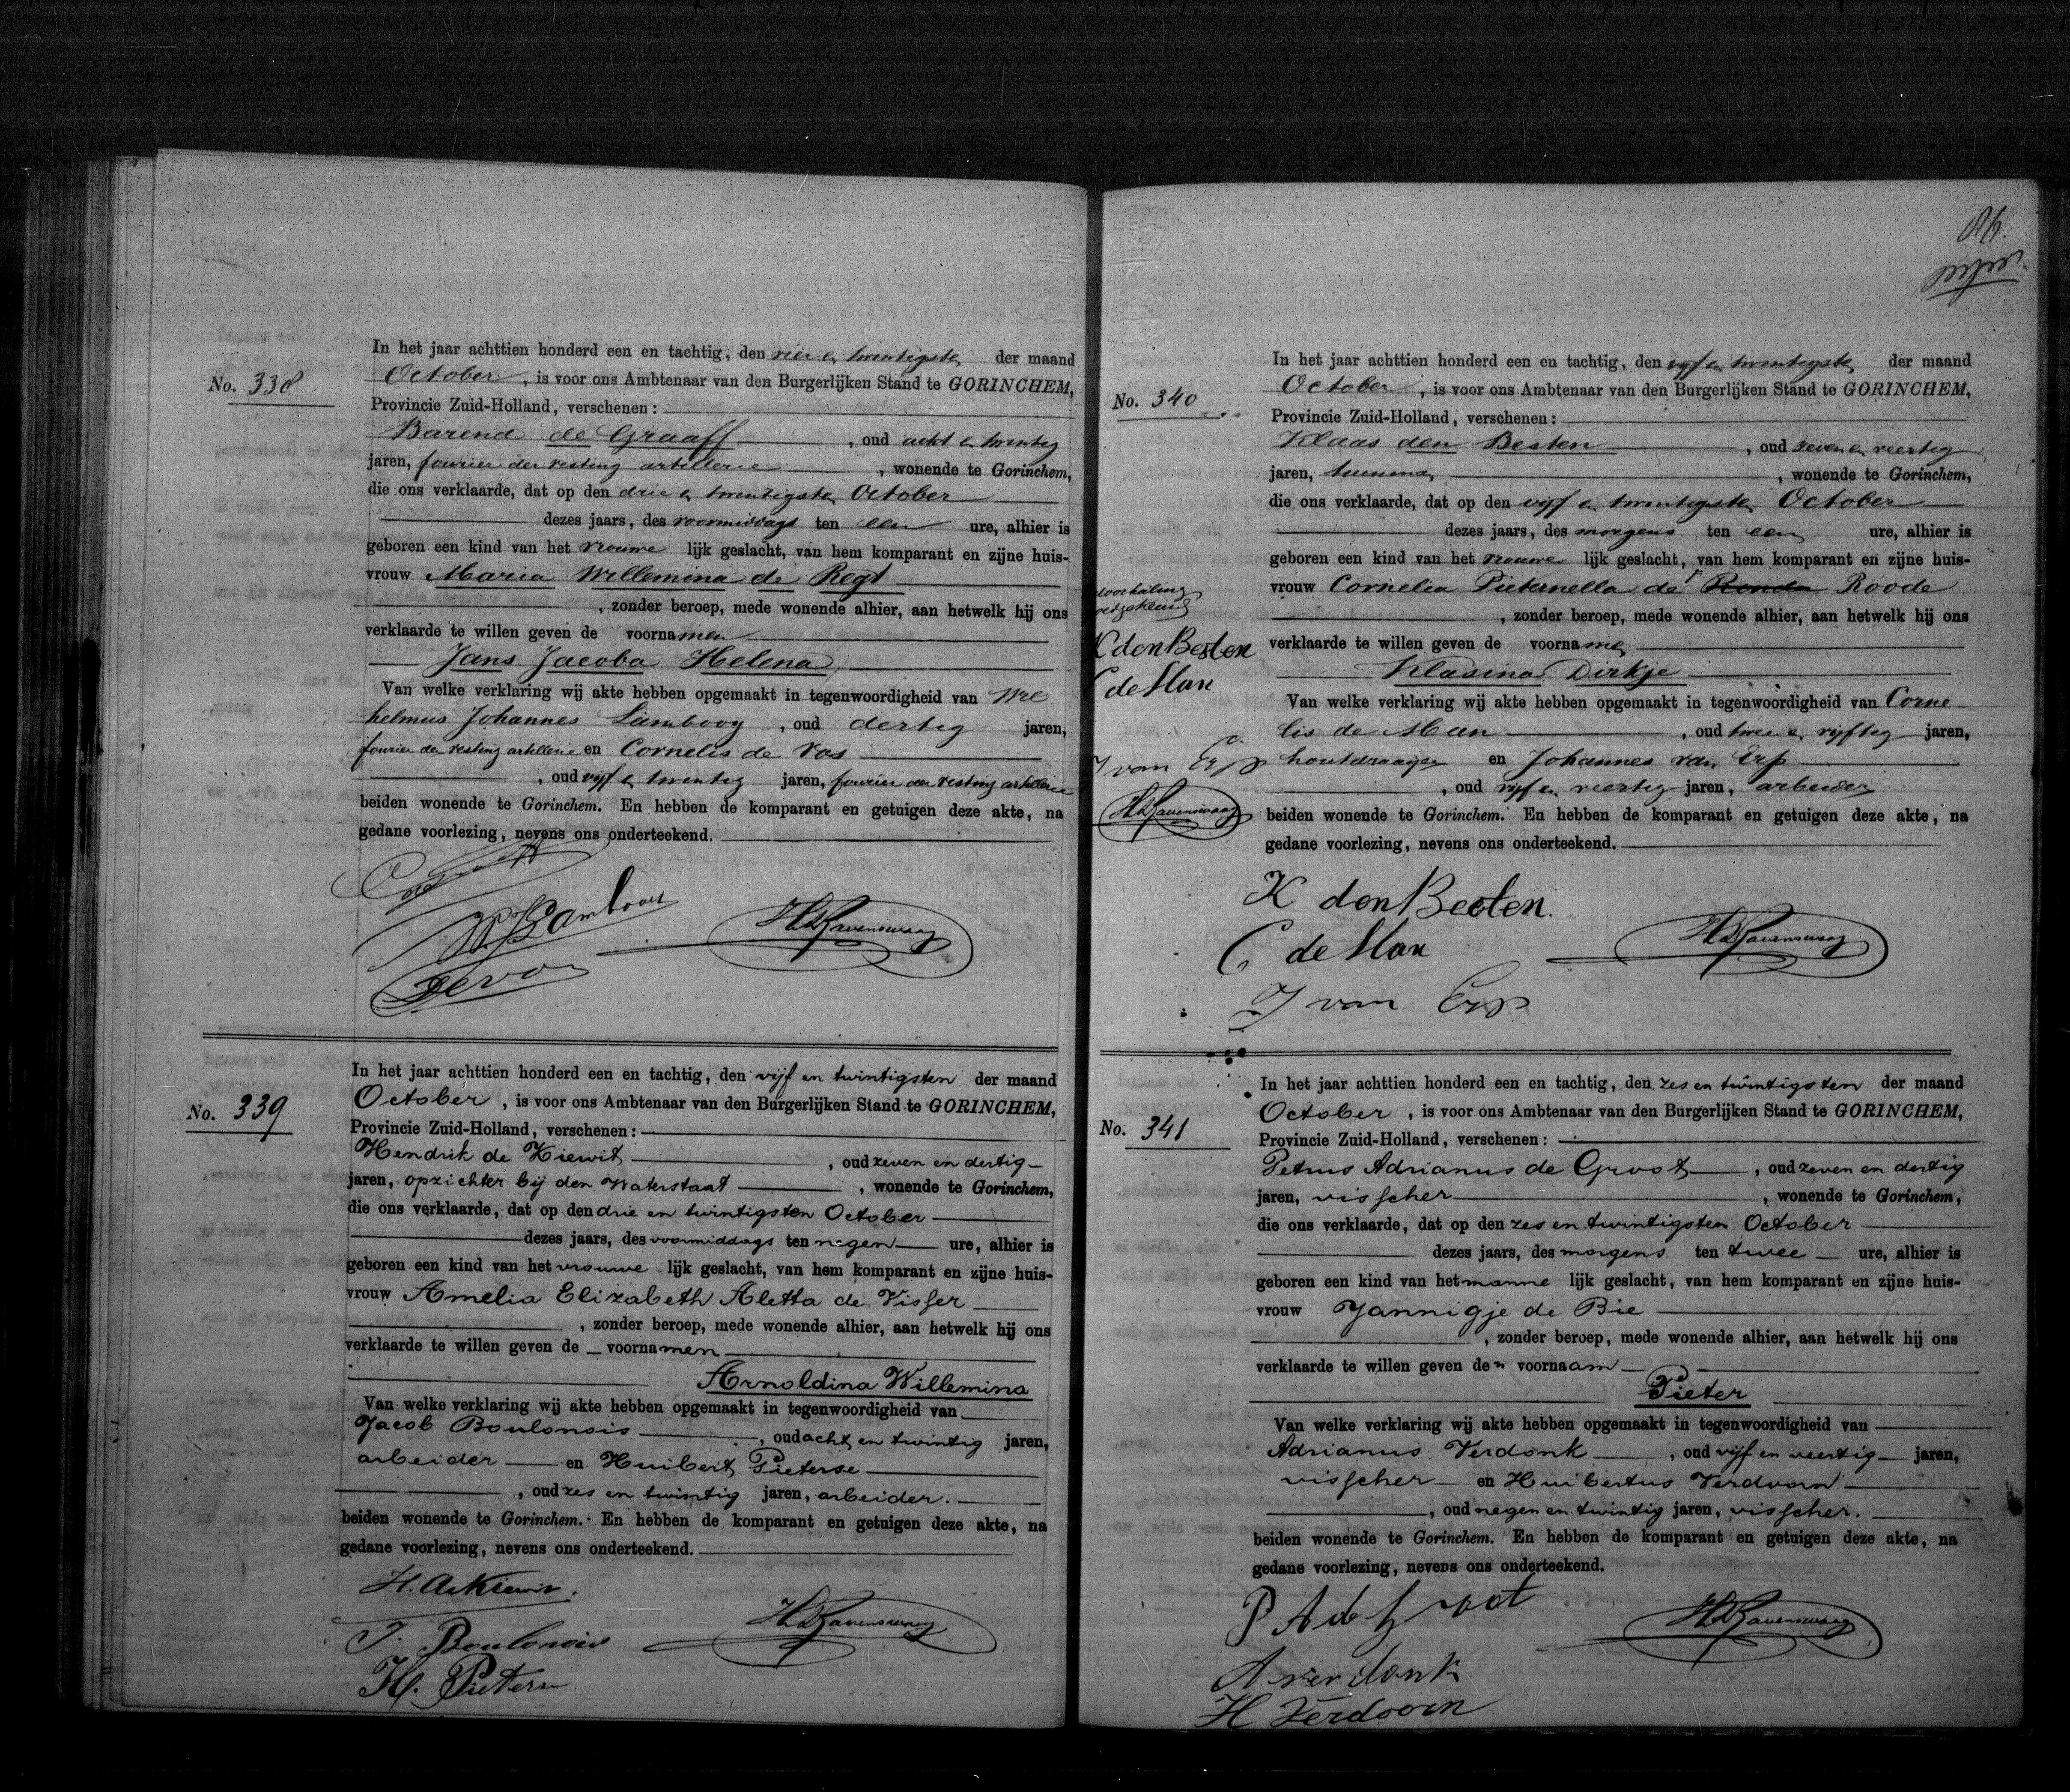 No. 338
In het jaar achttien honderd een en tachtig, den vier en twintigsten der maand
October, is voor ons Ambtenaar van den Burgerlijken Stand te GORINCHEM,
Provincie Zuid-Holland, verschenen:
Barend de Graaff, oud acht en twintig
jaren, fourier der vesting artillerie, wonende te Gorinchem,
die ons verklaarde, dat op den drie en twintigsten October
dezes jaars, des voormiddags ten een ure, alhier is
geboren een kind van het vrouwe lijk geslacht, van hem komparant en zijne huis-
vrouw Maria Willemina de Regt
, zonder beroep, mede wonende alhier, aan hetwelk hij ons
verklaarde te willen geven de voornamen
Jans Jacoba Helena
Van welke verklaring wij akte hebben opgemaakt in tegenwoordigheid van Wil
helmus Johannes Lambooy, oud dertig jaren,
fourier der vesting artillerie en Cornelis de Vos
, oud vijf en twintig jaren, fourier der vesting artillerie
beiden wonende te Gorinchem. En hebben de komparant en getuigen deze akte, na
gedane voorlezing, nevens ons onderteekend.
WJLambooy
HvRavenswaay
CdeVos
No. 339
In het jaar achttien honderd een en tachtig, den vijf en twintigsten der maand
October, is voor ons Ambtenaar van den Burgerlijken Stand te GORINCHEM,
Provincie Zuid-Holland, verschenen:
Hendrik de Kiewit, oud zeven en dertig
jaren, opzichter bij den Waterstaat, wonende te Gorinchem,
die ons verklaarde, dat op den drie en twintigsten October
dezes jaars, des voormiddags ten negen ure, alhier is
geboren een kind van het vrouwe lijk geslacht, van hem komparant en zijne huis-
vrouw Amelia Elizabeth Aletta de Visser
, zonder beroep, mede wonende alhier, aan hetwelk hij ons
verklaarde te willen geven de voornamen
Arnoldina Willemina
Van welke verklaring wij akte hebben opgemaakt in tegenwoordigheid van
Jacob Boulonois, oud acht en twintig jaren,
arbeider en Huibert Pieterse
, oud zes en twintig jaren, arbeider.
beiden wonende te Gorinchem. En hebben de komparant en getuigen deze akte, na
gedane voorlezing, nevens ons onderteekend.
H. de Kiewit.
J. Boulonois
HvRavenswaay
H. Pieterse
No. 340
In het jaar achttien honderd een en tachtig, den vijf en twintigsten der maand
October, is voor ons Ambtenaar van den Burgerlijken Stand te GORINCHEM,
Provincie Zuid-Holland, verschenen:
Klaas den Besten, oud zeven en veertig
jaren, , wonende te Gorinchem,
die ons verklaarde, dat op den vijf en twintigsten October
dezes jaars, des morgens ten een ure, alhier is
geboren een kind van het vrouwe lijk geslacht, van hem komparant en zijne huis-
vrouw Cornelia Pieternella de Ronde Roode
, zonder beroep, mede wonende alhier, aan hetwelk hij ons
verklaarde te willen geven de voornamen
Klasina Dirkje
Van welke verklaring wij akte hebben opgemaakt in tegenwoordigheid van Corne
lis de Man, oud twee en vijftig jaren,
houtdraager en Johannes van Erp
, oud vijf en veertig jaren, arbeider
beiden wonende te Gorinchem. En hebben de komparant en getuigen deze akte, na
gedane voorlezing, nevens ons onderteekend.
doorhaling
goedgekeurd
K den Besten
C de Man
J van Erp
HvRavenswaay
K den Besten.
C de Man
HvRavenswaay
J van Erp
No. 341
In het jaar achttien honderd een en tachtig, den zes en twintigsten der maand
October, is voor ons Ambtenaar van den Burgerlijken Stand te GORINCHEM,
Provincie Zuid-Holland, verschenen:
Petrus Adrianus de Groot, oud zeven en dertig
jaren, visscher, wonende te Gorinchem,
die ons verklaarde, dat op den zes en twintigsten October
dezes jaars, des morgens ten twee ure, alhier is
geboren een kind van het manne lijk geslacht, van hem komparant en zijne huis-
vrouw Jannigje de Bie
, zonder beroep, mede wonende alhier, aan hetwelk hij ons
verklaarde te willen geven den voornaam
Pieter
Van welke verklaring wij akte hebben opgemaakt in tegenwoordigheid van
Adrianus Verdonk, oud vijf en veertig jaren,
visscher en Huibertus Verdoorn
, oud negen en twintig jaren, visscher.
beiden wonende te Gorinchem. En hebben de komparant en getuigen deze akte, na
gedane voorlezing, nevens ons onderteekend.
P A de Groot
HvRavenswaay
A verdonk
H Verdoorn